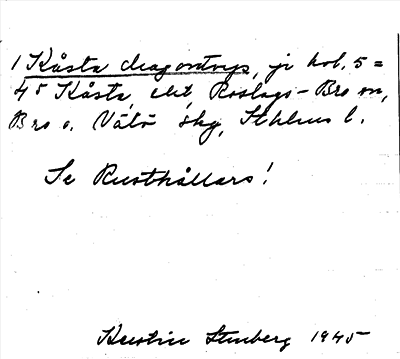 1 Kåsta dragontorp, jr kol. 5 =
4⁵ Kåsta, ekt, Roslags-Bro sn,
Bro o. Vätö skg, Sthlms l.
Se Rusthållars!
Kerstin Stenberg 1945